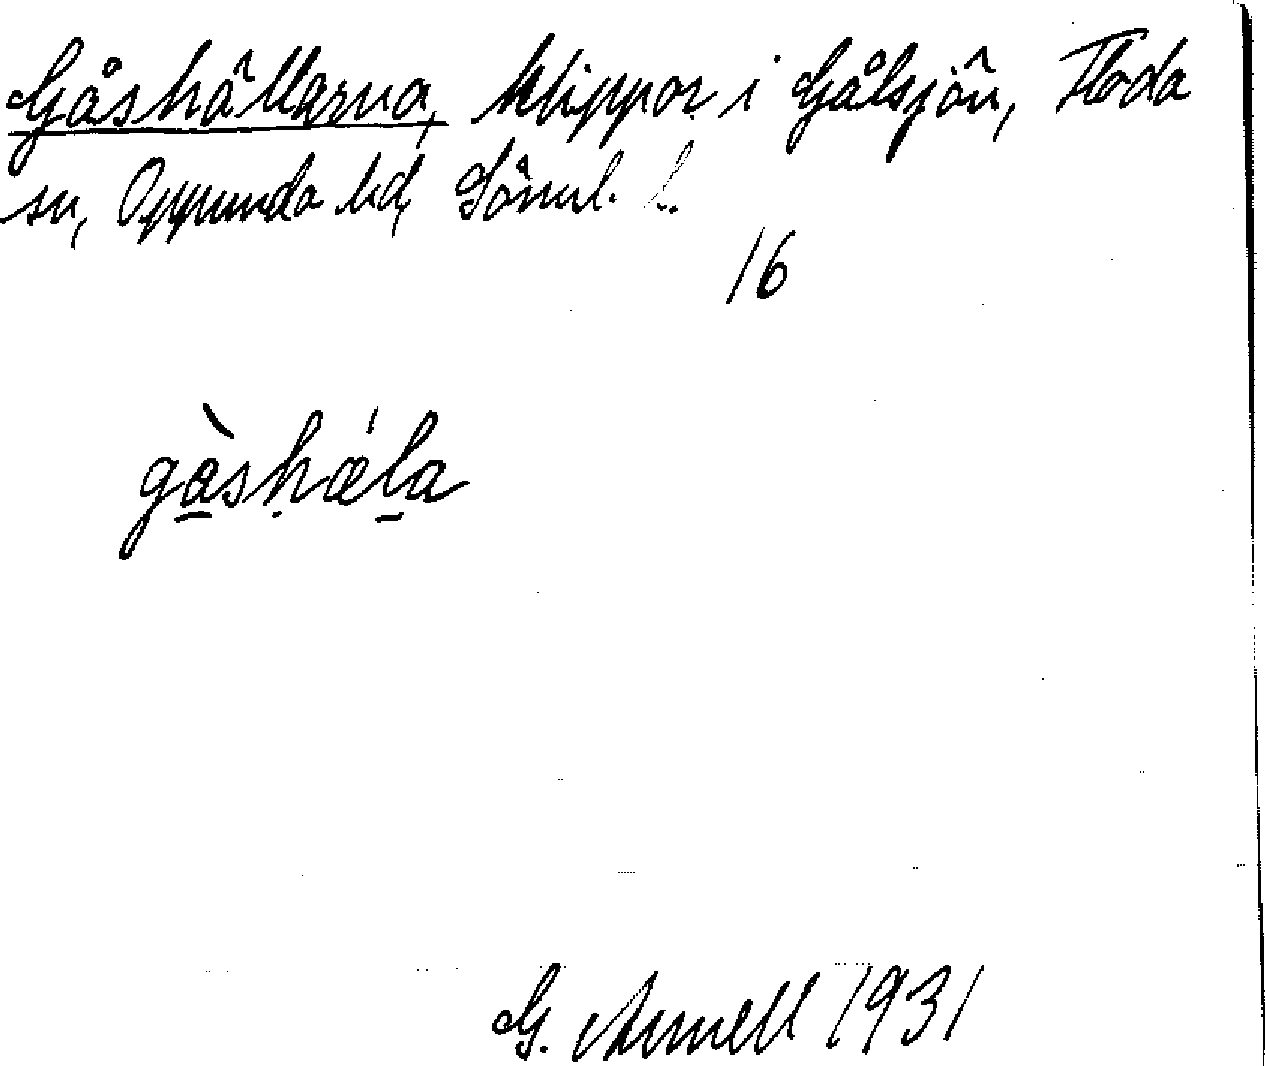 Gåshällarna, klippor i Gålsjön, Floda
sn, Oppunda hd, Söml. l.
16
gàshǽla
G. Arnell 1931